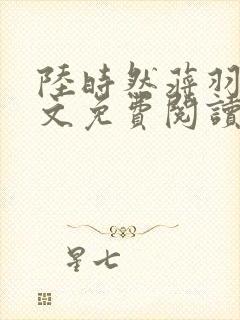 陸時然蔣羽
文免費閱讀
星七